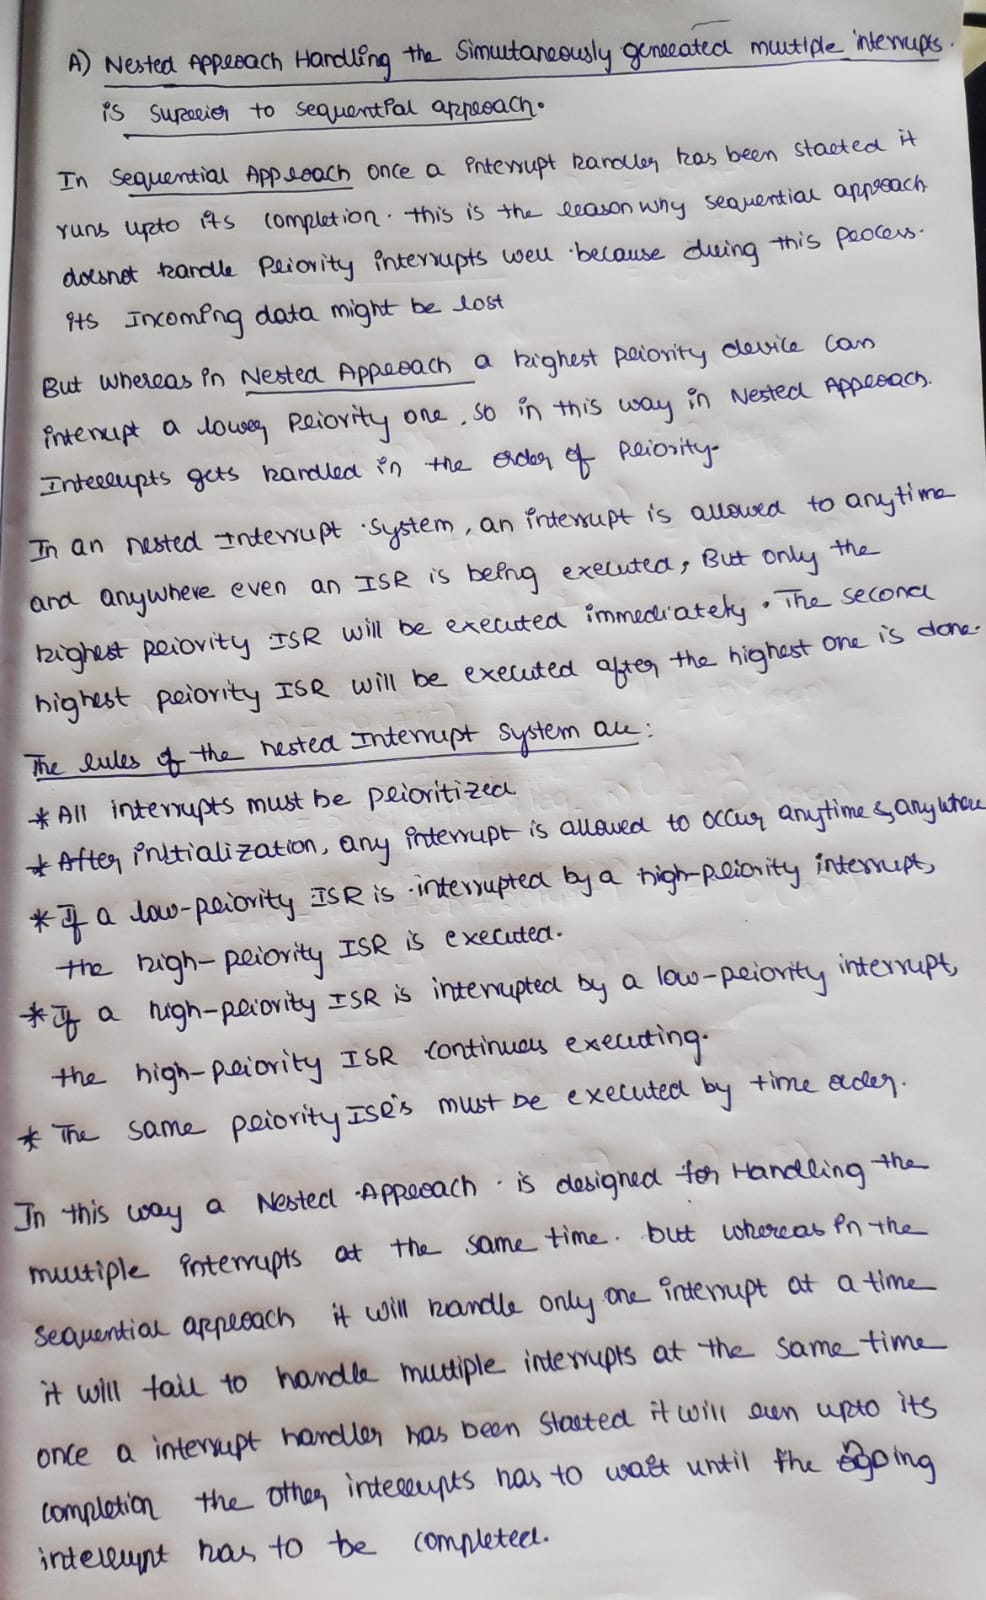 A) Nested Approach Handling the Simultaneously generated multiple interrupts.
is superior to sequential approach.
In Sequential Approach once a interrupt handler has been started it
runs upto its completion. this is the reason why sequential approach
doesnot handle Priority interrupts well because during this process.
its Incoming data might be lost
But whereas in Nested Approach a highest priority device can
interrupt a lower Priority one. so in this way in Nested Approach.
Interrupts gets handled in the order of Priority.
In an nested Interrupt system, an interrupt is allowed to anytime
and anywhere even an ISR is being executed, But only the
highest priority ISR will be executed immediately. The second
highest priority ISR will be executed after the highest one is done.
The rules of the nested Interrupt system are:
* All interrupts must be prioritized
* After initialization, any interrupt is allowed to occur anytime & anywhere
* If a low-priority ISR is interrupted by a high-priority interrupt,
the high-priority ISR is executed.
* If a high-priority ISR is interrupted by a low-priority interrupt,
the high-priority ISR continues executing.
* The same priority ISR's must be executed by time order.
In this way a Nested Approach is designed for Handling the
multiple interrupts at the same time. but whereas in the
sequential approach it will handle only one interrupt at a time
it will fail to handle multiple interrupts at the same time
once a interrupt handler has been started it will run upto its
completion the other interrupts has to wait until the going
interrupt has to be completed.